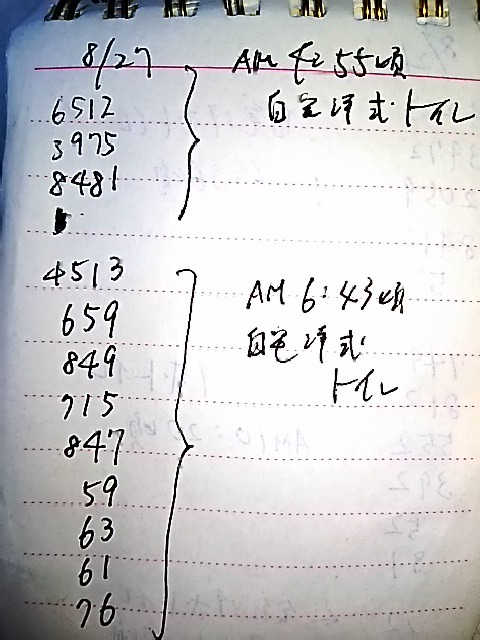 8/27
AM 4:55頃
自宅洋式トイレ
6512
3975
8481
4513
659
849
715
847
59
63
61
76
AM 6:43頃
自宅洋式
トイレ